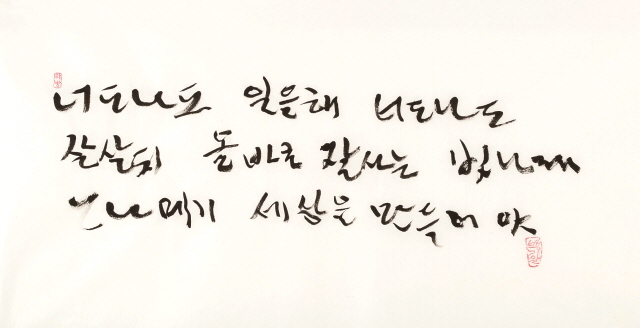 너도나도 일을해 너도나도
잘살되 올바로 잘사는 벗나래
노나메기 세상을 만들어야